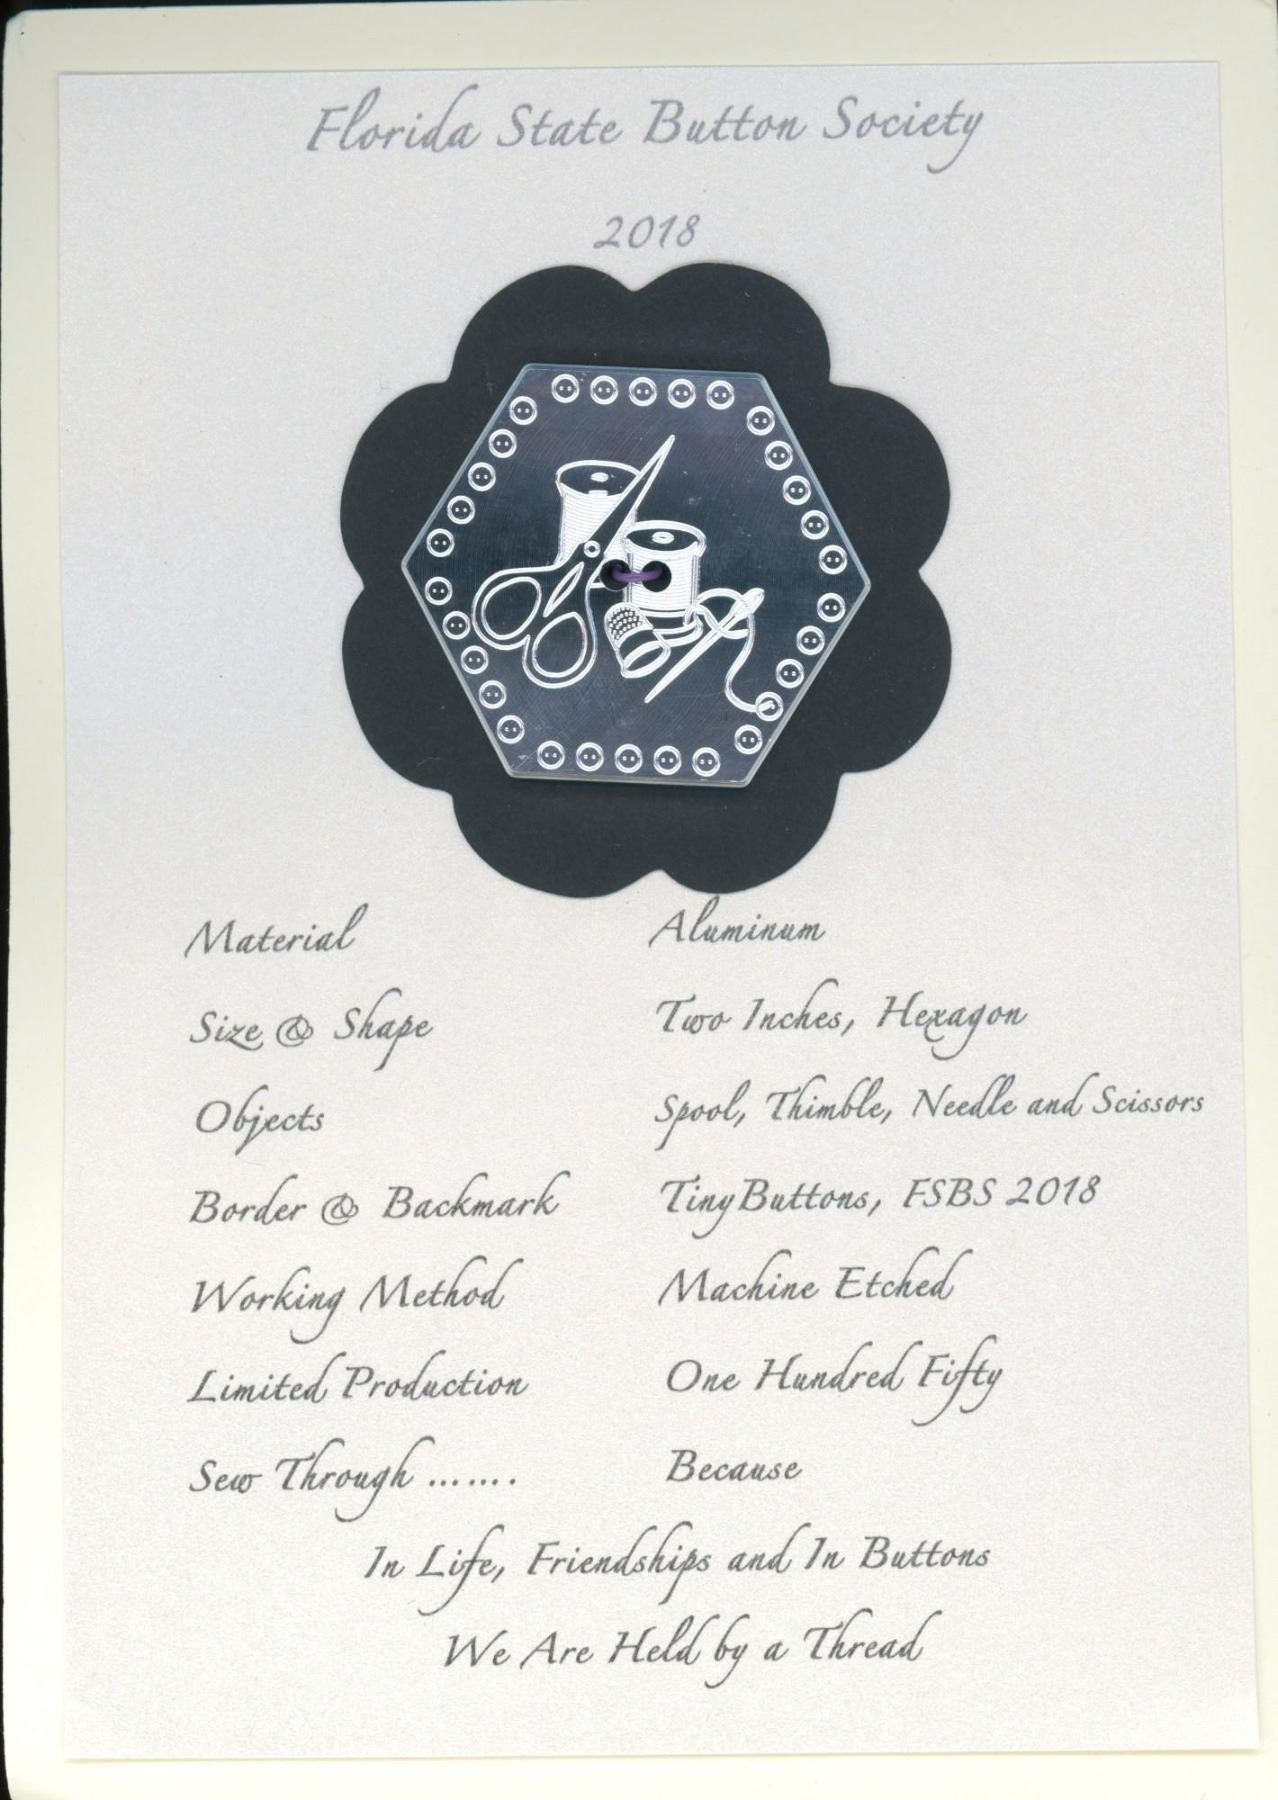 Florida State Button Society
2018
Material Aluminum
Size & Shape Two Inches, Hexagon
Objects Spool, Thimble, Needle and Scissors
Border & Backmark Tiny Buttons, FSBS 2018
Working Method Machine Etched
Limited Production One Hundred Fifty
Sew Through ....... Because
In Life, Friendships and In Buttons
We Are Held by a Thread